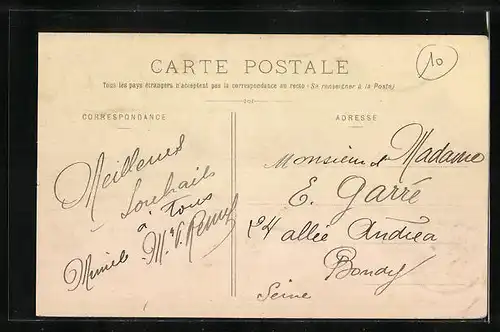 CARTE POSTALE
10
Tous les pays étrangers n'acceptent pas la correspondance au recto (Se renseigner à la Poste)
CORRESPONDANCE
Meilleurs
Souhaits
à Tous
ADRESSE
Monsieur et Madame
E. Garré
24 allée Andréa
Bondy
Seine